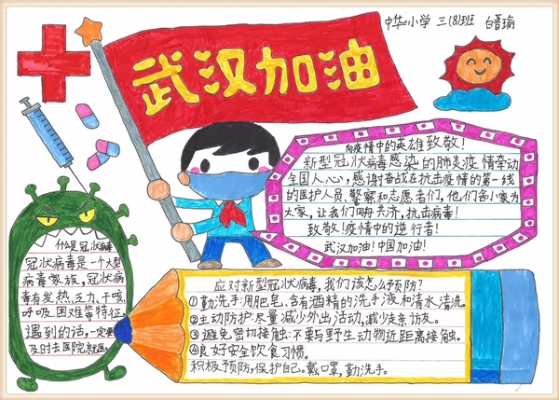 中华小学 三(8)班
武汉加油
向疫情中的英雄致敬!
新型冠状病毒感染的肺炎疫情牵动
全国人心,感谢奋战在抗击疫情的第一线
的医护人员、警察和志愿者们,他们舍小家为
大家,让我们共济,抗击病毒!
致敬!疫情中的逆行者!
武汉加油!中国加油!
什么是冠状病毒
冠状病毒是一个大型
病毒家族,冠状病
毒有发热、乏力、干咳、
呼吸困难等特征,
遇到的话,一定要
及时去医院就医。
应对新型冠状病毒,我们该怎么预防?
①勤洗手:用肥皂、含有酒精的洗手液和清水清洗。
②主动防护:尽量减少外出活动,减少走亲访友。
③避免密切接触:不要与野生动物近距离接触。
④良好安全饮食习惯。
积极预防,保护自己。戴口罩,勤洗手。